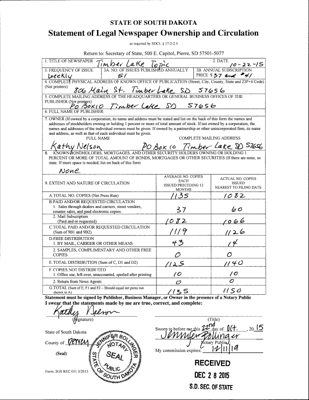 STATE OF SOUTH DAKOTA
Statement of Legal Newspaper Ownership and Circulation
as required by SDCL § 17-2-2.3
Return to: Secretary of State, 500 E. Capitol, Pierre, SD 57501-5077
1. TITLE OF NEWSPAPER Timber Lake Topic
2. DATE 10-22-15
3. FREQUENCY OF ISSUE weekly
3A. NO. OF ISSUES PUBLISHED ANNUALLY 51
3B. ANNUAL SUBSCRIPTION PRICE $37 and $41
4. COMPLETE PHYSICAL ADDRESS OF KNOWN OFFICE OF PUBLICATION (Street, City, County, State and ZIP+4 Code) (Not printers)
806 Main St. Timber Lake SD 57656
5. COMPLETE MAILING ADDRESS OF THE HEADQUARTERS OR GENERAL BUSINESS OFFICES OF THE PUBLISHER (Not printers)
PO Box 10 Timber Lake SD 57656
6. FULL NAME OF PUBLISHER:
7. OWNER (If owned by a corporation, its name and address must be stated and list on the back of this form the names and addresses of stockholders owning or holding 1 percent or more of total amount of stock. If not owned by a corporation, the names and addresses of the individual owners must be given. If owned by a partnership or other unincorporated firm, its name and address, as well as that of each individual must be given.
FULL NAME COMPLETE MAILING ADDRESS
Kathy Nelson PO Box 10 Timber Lake SD 57656
8. KNOWN BONDHOLDERS, MORTGAGES, AND OTHER SECURITY HOLDERS OWNING OR HOLDING 1 PERCENT OR MORE OF TOTAL AMOUNT OF BONDS, MORTGAGES OR OTHER SECURITIES (If there are none, so state. If more space is needed, list on back of this form.
None
9. EXTENT AND NATURE OF CIRCULATION
AVERAGE NO. COPIES EACH ISSUED PRECEDING 12 MONTHS
ACTUAL NO. COPIES ISSUED NEAREST TO FILING DATE
A. TOTAL NO. COPIES (Net Press Run) 1135 1082
B. PAID AND/OR REQUESTED CIRCULATION
1. Sales through dealers and carriers, street vendors, counter sales, and paid electronic copies 37 60
2. Mail Subscriptions (Paid and/or requested) 1082 1066
C. TOTAL PAID AND/OR REQUESTED CIRCULATION (Sum of 9B1 and 9B2) 1119 1126
D. FREE DISTRIBUTION
1. BY MAIL, CARRIER OR OTHER MEANS 43 14
2. SAMPLES, COMPLIMENTARY AND OTHER FREE COPIES 0 0
E. TOTAL DISTRIBUTION (Sum of C, D1 and D2) 1125 1140
F. COPIES NOT DISTRIBUTED
1. Office use, left over, unaccounted, spoiled after printing 10 10
2. Return from News Agents 0 0
G. TOTAL (Sum of E, F1 and F2 - Should equal net press run shown in A) 1135 1150
Statement must be signed by Publisher, Business Manager, or Owner in the presence of a Notary Public
I swear that the statements made by me are true, correct, and complete:
Kathy Nelson
(Signature) (Title)
State of South Dakota
Sworn to before me this 22nd day of Oct. 2015
County of Dewey
Jennifer Bollinger
Notary Public
(Seal)
My commission expires:
JENNIFER BOLLINGER
NOTARY PUBLIC
SEAL
SOUTH DAKOTA
RECEIVED
DEC 28 2015
S.D. SEC. OF STATE